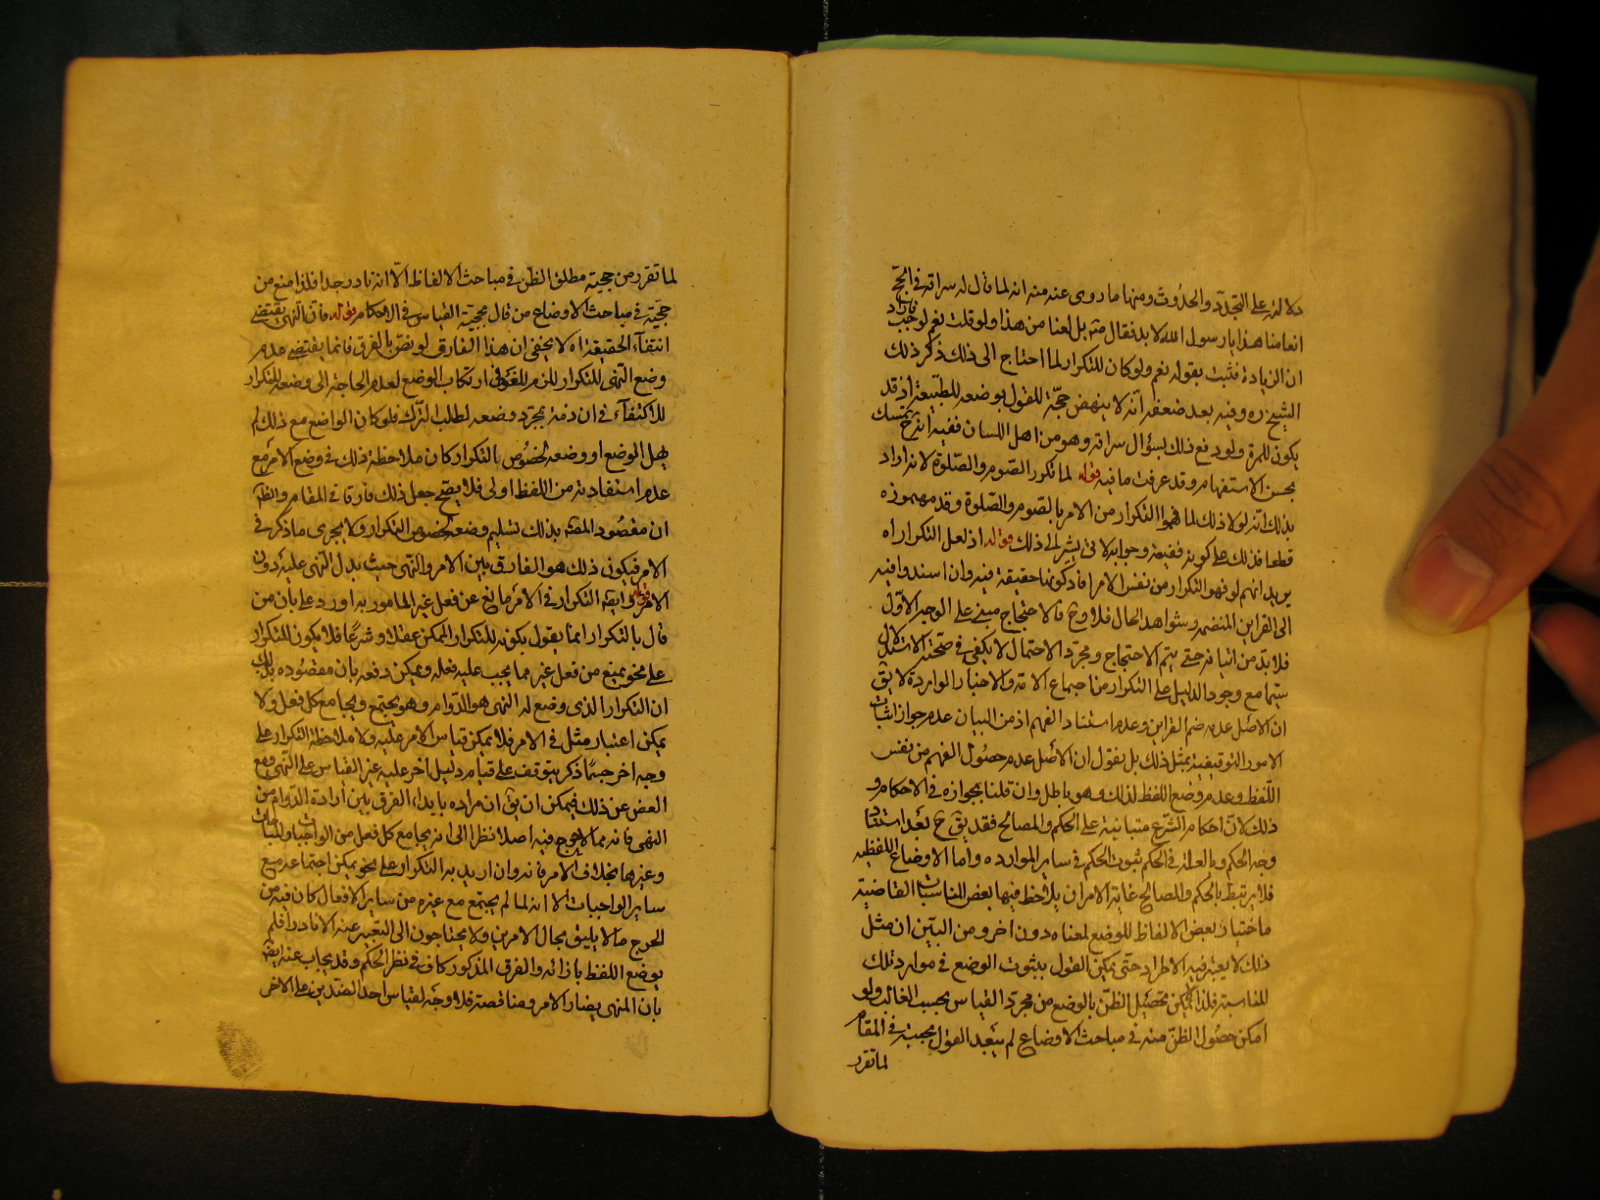 دلالة له على التجدّد والحدوث ومنها ما روى عنه منه انه لما قال له سراقة في الحجّ
لعامنا هذا يا رسول الله لا بد فقال مه بل لعامنا هذا ولو قلت نعم لوجب فأراد
ان الزيادة فثبت بقوله نعم ولو كان للتكرار لما احتاج الى ذلك ذكر ذلك
الشيخ ره وفيه بعد ضعفه انّه لا ينهض حجّة للقول بوضعه للطبيعة اذ قد
يكون للمرة ولو دفع ذلك بسؤال سراقة وهو من اهل اللسان ففيه انه ح يتمسك
بحسن الاستفهام وقد عرفت ما فيه قوله لما تكرر الصّوم والصّلوة لانه اراد
بذلك انّه لولا ذلك لما فهموا التكرار من الامر بالصوم والصّلوة وقد فهموه
قطعا فذلك على كونه حقيقة وجوابه لاتى يشير الى ذلك قوله اذ لعل التكرار اه
يريد انهم لو فهموا التكرار من نفس الامر افاد كونها حقيقة فيه وان اسندوا فيه
الى القراين المنضمه وشواهد الحال فلا وح فالاحتجاج مبنى على الوجه الاوّل
فلا بدّ من اثباته حتى يتم الاحتجاج ومجرّد الاحتمال لا يكفي في صحة الاستدلال
سيّما مع وجود الدليل على التكرار من اجماع الامة والاخبار الواردة لا يق
ان الاصل عدم ضم القراين وعدم استناد الفهم اذ من البيان عدم جواز اثبات
الامور التوقيفية بمثل ذلك بل نقول ان الاصل عدم حصول الفهم من نفس
اللّفظ وعدم وضع اللفظ لذلك وهو باطل وان قلنا بجوازه في الاحكام و
ذلك لان احكام الشّرع مبتنية على الحكم والمصالح فقد يق ح بعد استفادة
وجه الحكم وبالعلة في الحكم ثبوت الحكم في ساير الموارده واما الاوضاع اللفظيه
فلا يرتبط بالحكم والمصالح غاية الامر ان يلاحظ فيها بعض المناسبات القاضية
باختيار بعض الالفاظ للوضع لمعناه دون اخر ومن البيّن ان مثل
ذلك لا يعتبر فيه الاطراد حتى يمكن القول بثبوت الوضع في موارد تلك
المناسبة فلذا لا يمكن تحصيل الظنّ بالوضع من مجرد القياس بحسب الغالب ولو
امكن حصول الظنّ منه في مباحث الاوضاع لم يبعد القول بحجيته في المقام
لما تقرر
لما تقرر من حجية مطلق الظن في مباحث الالفاظ الّا انه نادر جدا فلذا منع من
حجّيّة في مباحث الاوضاع من قال بحجية القياس في الاحكام قوله فان النّهى يقتضى
انتفاء الحقيقة اه لا يخفى ان هذا الفارق لو نصّ بالفرق فانما يقتضى عدم
وضع النّهى للتكرار للزوم اللغو في ارتكاب الوضع لعدم الحاجة الى وضعه للتكرار
للاكتفاء في ان دفعه بمجرّد وضعه لطلب الترك فلو كان الواضع مع ذلك لم
يهل الوضع او وضعه لخصوص بالتكرار كان ملاحظة ذلك في وضع الامر مع
عدم استفادته من اللفظ اولى فلا يصّح جعل ذلك فارقا في المقام والظ
ان مقصود المصّ بذلك تسليم وضعه لخصوص التكرار ولا يجرى ما ذكر في
الامر فيكون ذلك هو الفارق بين الامر والنّهى حيث يدل النّهى عليه دون
الامر قوله وايضا التكرار في الامر مانع عن فعل غير المامور به اورد عليه بان من
قال بالتكرار انما يقول بكونه للتكرار الممكن عقلا وشرعا فلا يكون التكرار
على نحو يمنع من فعل غيره مما يجب عليه فعله ويمكن دفعه بان مقصوده بذلك
ان التكرار الذى وضع له النهى هو الدّوام وهو يجتمع ويجامع كل فعل ولا
يمكن اعتبار مثله في الامر فلا يمكن قياس الامر عليه وملاحظة التكرار على
وجه اخر حسبما ذكر يتوقف على قيام دليل اخر عليه غير القياس على النّهى ومع
الغض عن ذلك فيمكن ان يق ان مراده بابداء الفرق بين ارادة الدوام من
النهى فانه مما لا حرج فيه اصلا نظرا الى انه يجامع كل فعل من الواجبات والمباحات
وغيرهما بخلاف الامر فانه وان اريد به التكرار على نحو يمكن اجتماعه مع
ساير الواجبات الا انه لما لم يجتمع مع غيره من ساير الافعال كان فيه من
الحرج ما لا يليق بحال الامرين ولا يحتاجون الى التعبير عنه الا نادرا فلم
يوضع اللفظ بازائه والفرق المذكور كاف في نظر الحكم وقد يجاب عنه ايضا
بان النهى يضاد الامر ومناقصة فلا وجه لقياس احد الضدين على الاخر